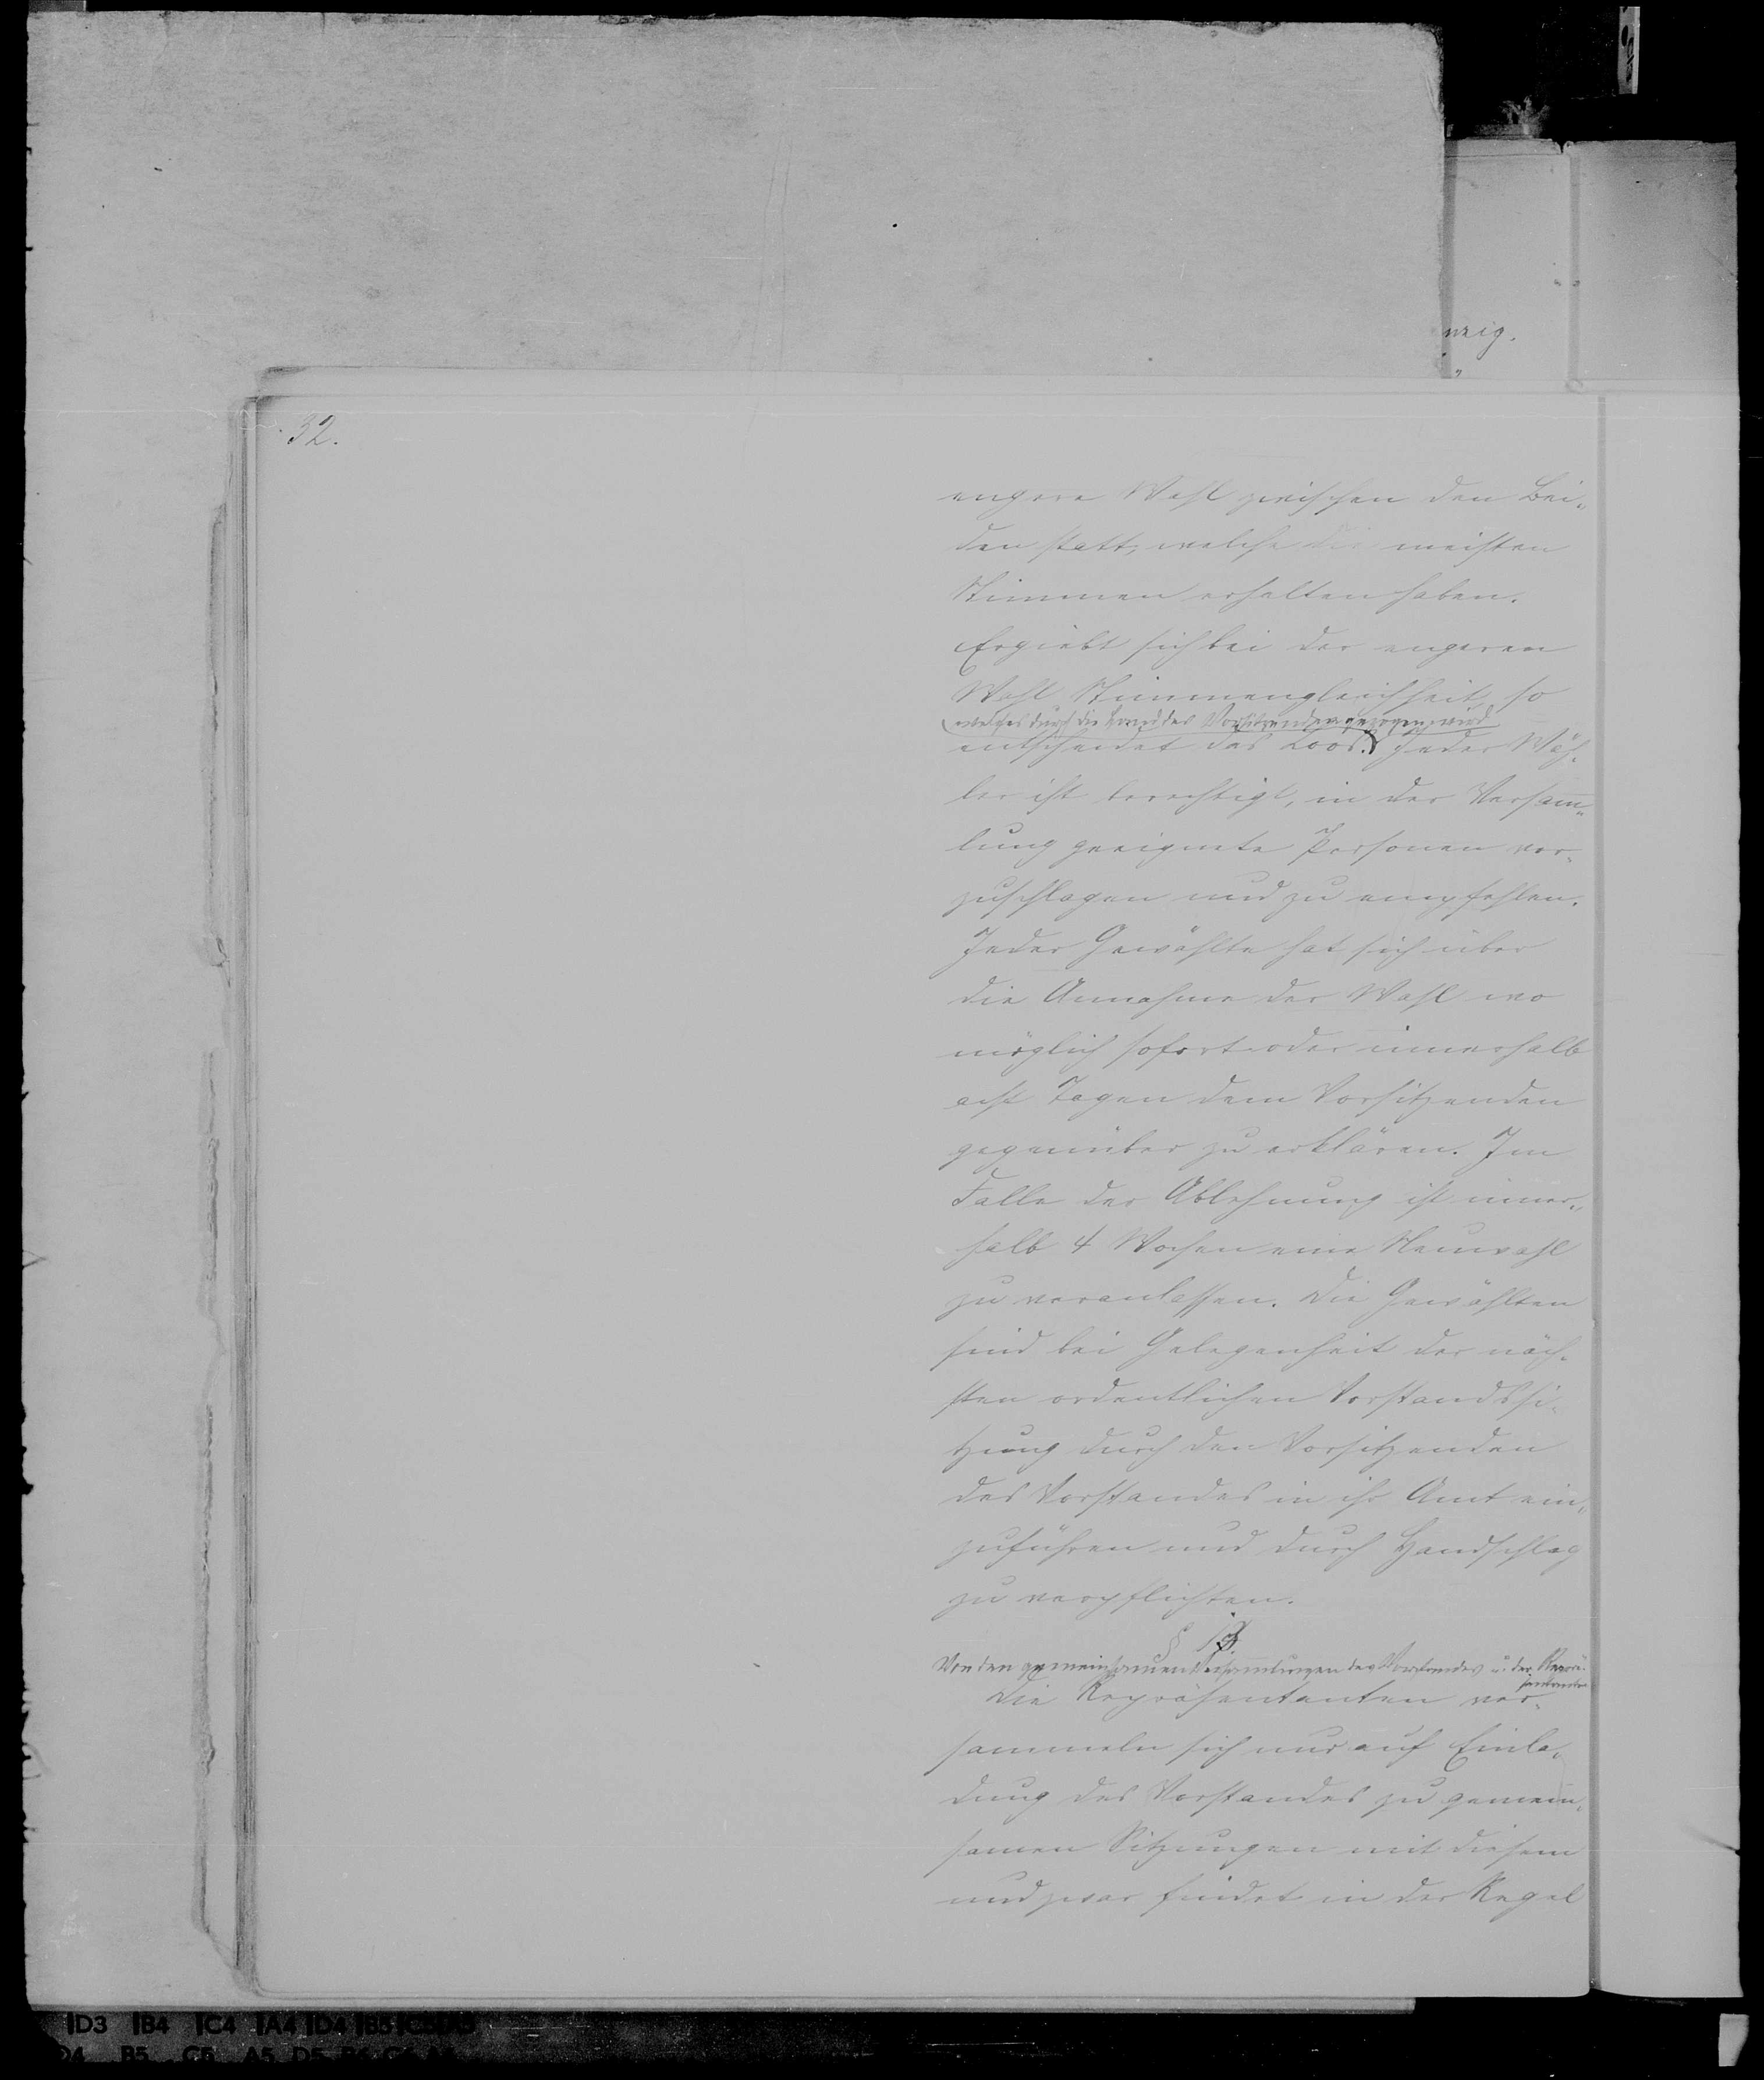 nzig.
32.
engere Wahl zwischen den Bei„
den statt, welche die meisten
Stimmen erhalten haben.
Ergiebt sich bei der engeren
Wahl Stimmengleichheit, so
(welches durch die Hand des Vorsitzenden gezogen wird
entscheidet das Loos.) Jeder Wäh„
ler ist berechtigt, in der Versam̅„
lung geeignete Personen vor„
zuschlagen und zu empfehlen.
Jeder Gewählte hat sich über
die Annahme der Wahl wo
möglich sofort oder innerhalb
acht Tagen dem Vorsitzenden
gegenüber zu erklären. Im
Falle der Ablehnung ist inner„
halb 4 Wochen eine Neuwahl
zu veranlassen. Die Gewählten
sind bei Gelegenheit der näch„
sten ordentlichen Vorstandssi„
tzung durch den Vorsitzenden
des Vorstandes in ihr Amt ein„
zuführen und durch Handschlag
zu verpflichten.
§
Von den gemeinsamen Versammlungen des Vorstandes u. der Reprä„
sentanten
Die Repräsentanten ver„
sammeln sich nur auf Einla„
dung des Vorstandes zu gemein„
samen Sitzungen mit diesem
und zwar findet in der Regel
D3 B4 C4 A4 D4 B5
D4 B5 C5 A5 D5